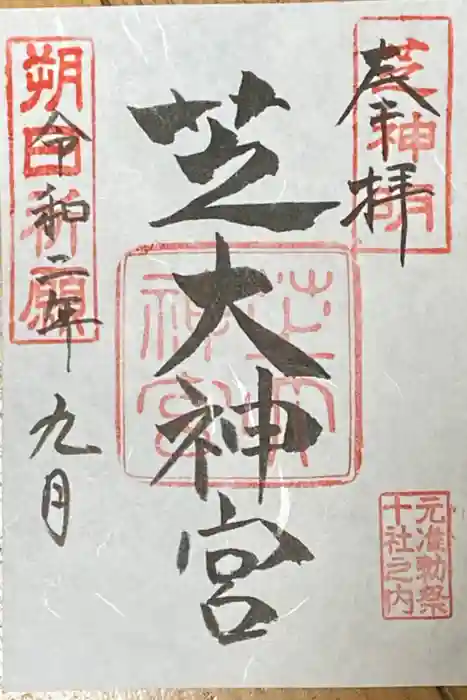 奉拝
芝神明
芝大神宮
芝大神宮
元准勅祭
十社之内
朔日祈願
令和二年
九月